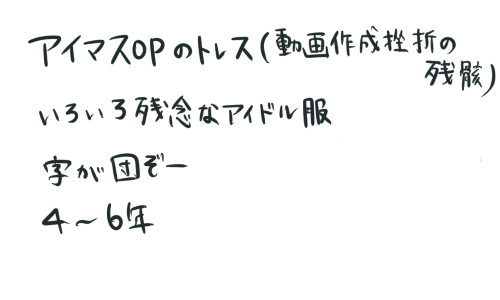 アイマスOPのトレス(動画作成挫折の
残骸)
いろいろ残念なアイドル服
字が団ぞー
4～6年